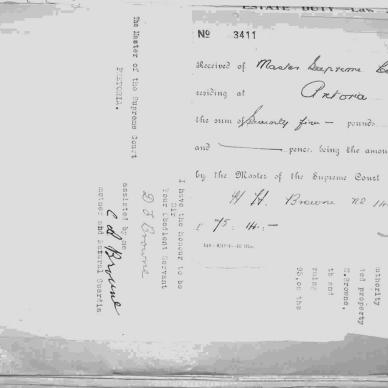 ESTATE DUTY - Law
No 3411
Received of Master Supreme
residing at Pretoria
the sum of Seventy five — pounds
and pence, being the amou
by the Master of the Supreme Court
H. H. Browne
£ 75 : 14 : -
The Master of the Supreme Court
PRETORIA.
I have the honour to be
Sir
Your Obedient Servant
D J Browne
assisted by me
C A Browne
mother and natural Guardia
uthority
ted property
E.Browne.
th and
rning
96,on the